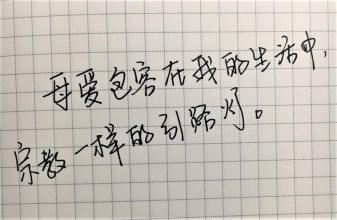 母爱包容在我的生活中,
宗教一样的引路灯。